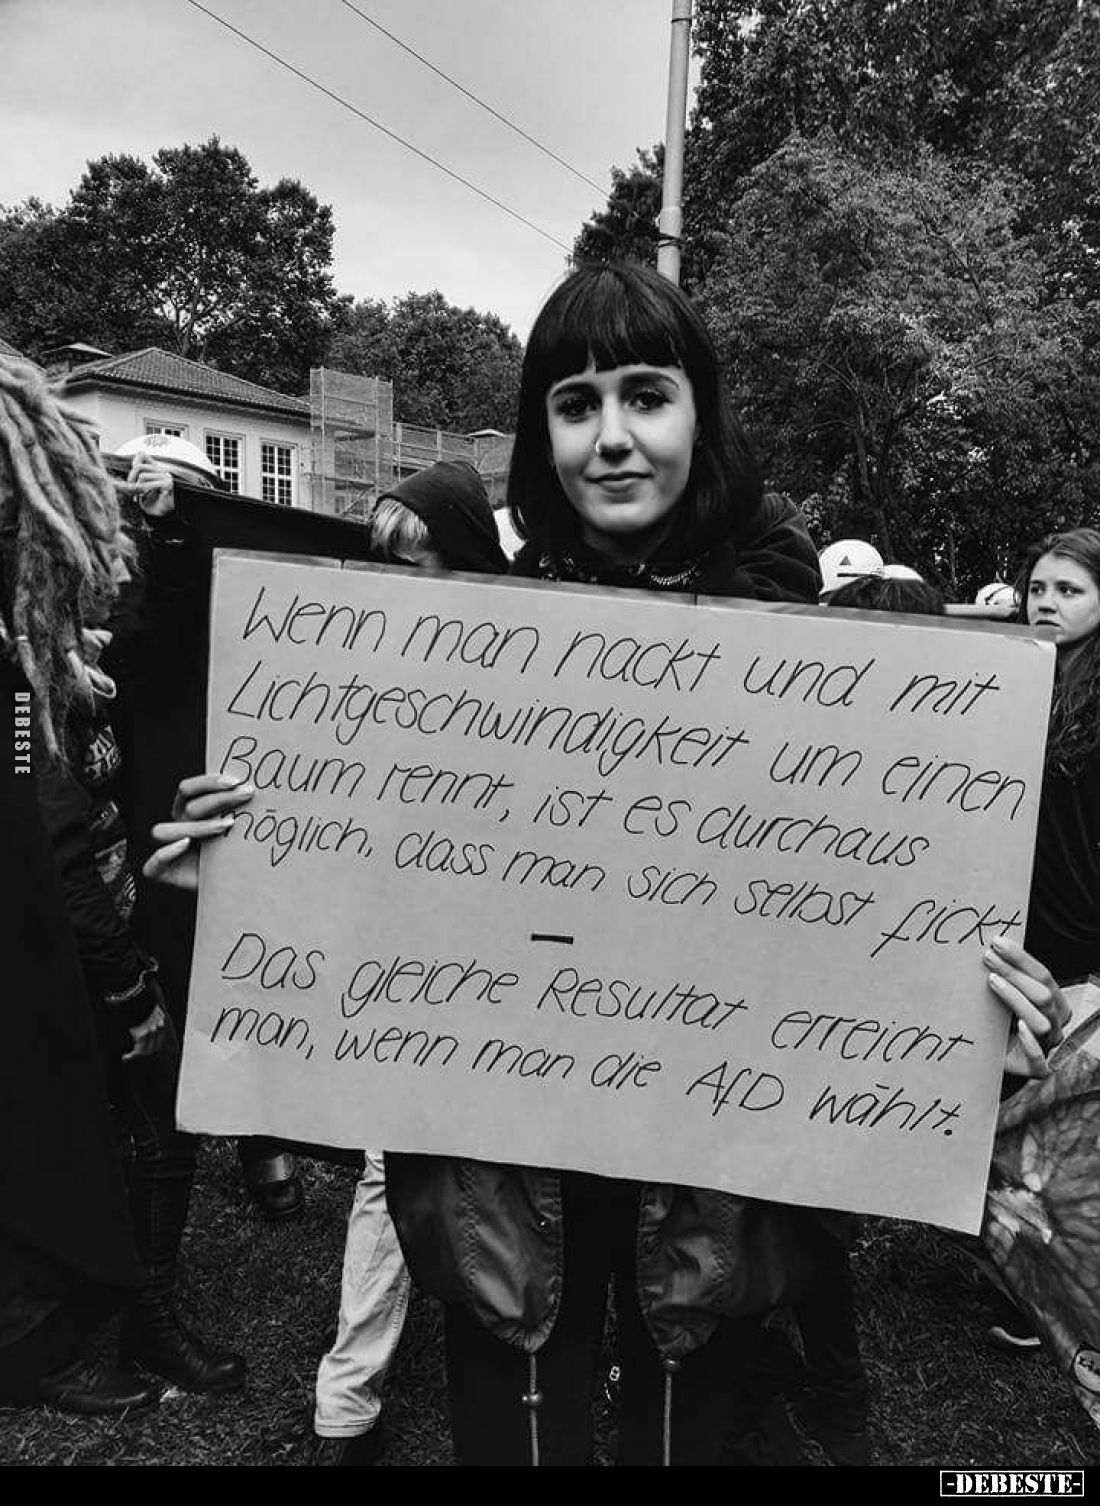 Wenn man nackt und mit
Lichtgeschwindigkeit um einen
Baum rennt, ist es durchaus
möglich, dass man sich selbst fickt
–
Das gleiche Resultat erreicht
man, wenn man die AfD wählt.
DEBESTE
-DEBESTE-